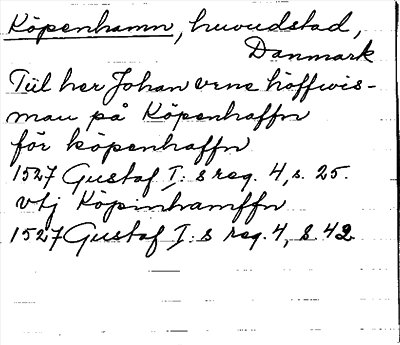 Köpenhamn, huvudstad,
Danmark
Till her Johan vrne höffwis-
man på Köpenhaffn
för köpenhaffn
1527 Gustaf I: s reg. 4, s. 25.
vtj Köpinhamffn
1527 Gustaf I: s reg. 4, s 42